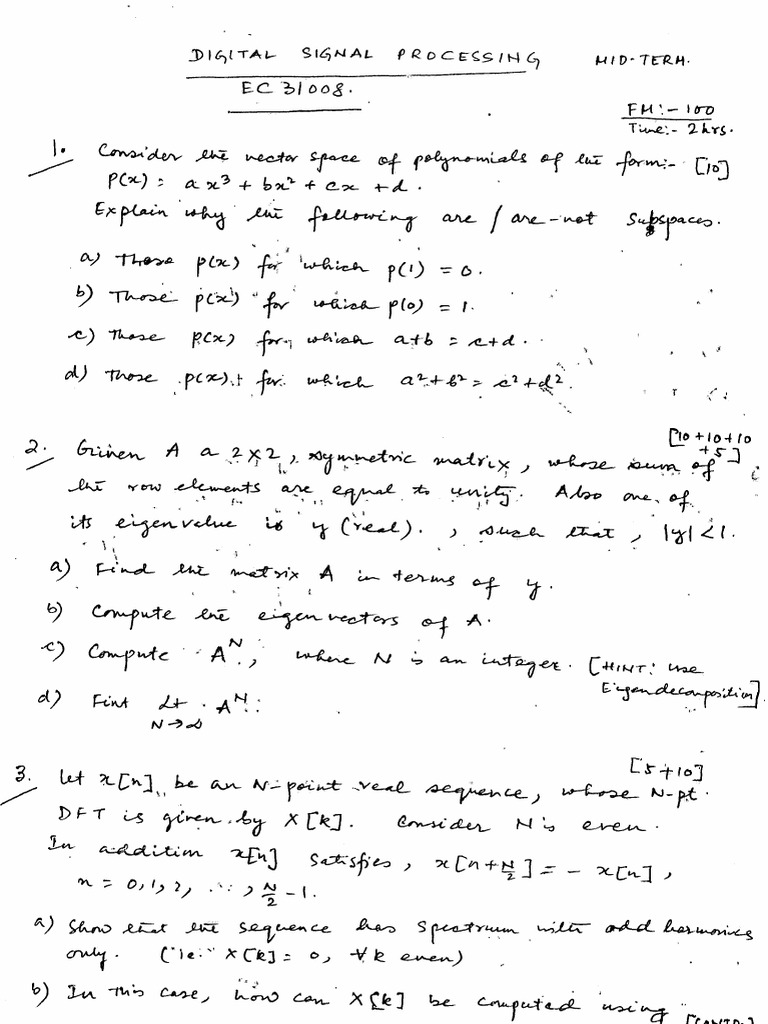 DIGITAL SIGNAL PROCESSING MID-TERM.
EC 31008.
FM:- 100
Time:- 2 hrs.
1. Consider the vector space of polynomials of the form:- [10]
P(x) = ax³ + bx² + cx + d.
Explain why the following are / are-not subspaces.
a) Those p(x) for which p(1) = 0.
b) Those p(x) for which p(0) = 1.
c) Those p(x) for which a+b = c+d.
d) Those p(x) for which a²+b² = c²+d².
[10+10+10
+5]
2. Given A a 2x2, symmetric matrix, whose sum of
the row elements are equal to unity. Also one of
its eigenvalue is y (real). , such that, |y|<1.
a) Find the matrix A in terms of y.
b) Compute the eigenvectors of A.
c) Compute A^N, where N is an integer. [HINT: Use
Eigendecomposition].
d) Fint Lt A^N.
N→∞
[5+10]
3. Let x[n], be an N-point real sequence, whose N-pt.
DFT is given by X[k]. Consider N is even.
In addition x[n] satisfies, x[n+N/2] = - x[n],
n = 0,1,2, ..., N/2 -1.
a) Show that the sequence has spectrum with odd harmonics
only. (ie. X[k] = 0, ∀k even)
b) In this case, how can X[k] be computed using
[CONTD.]